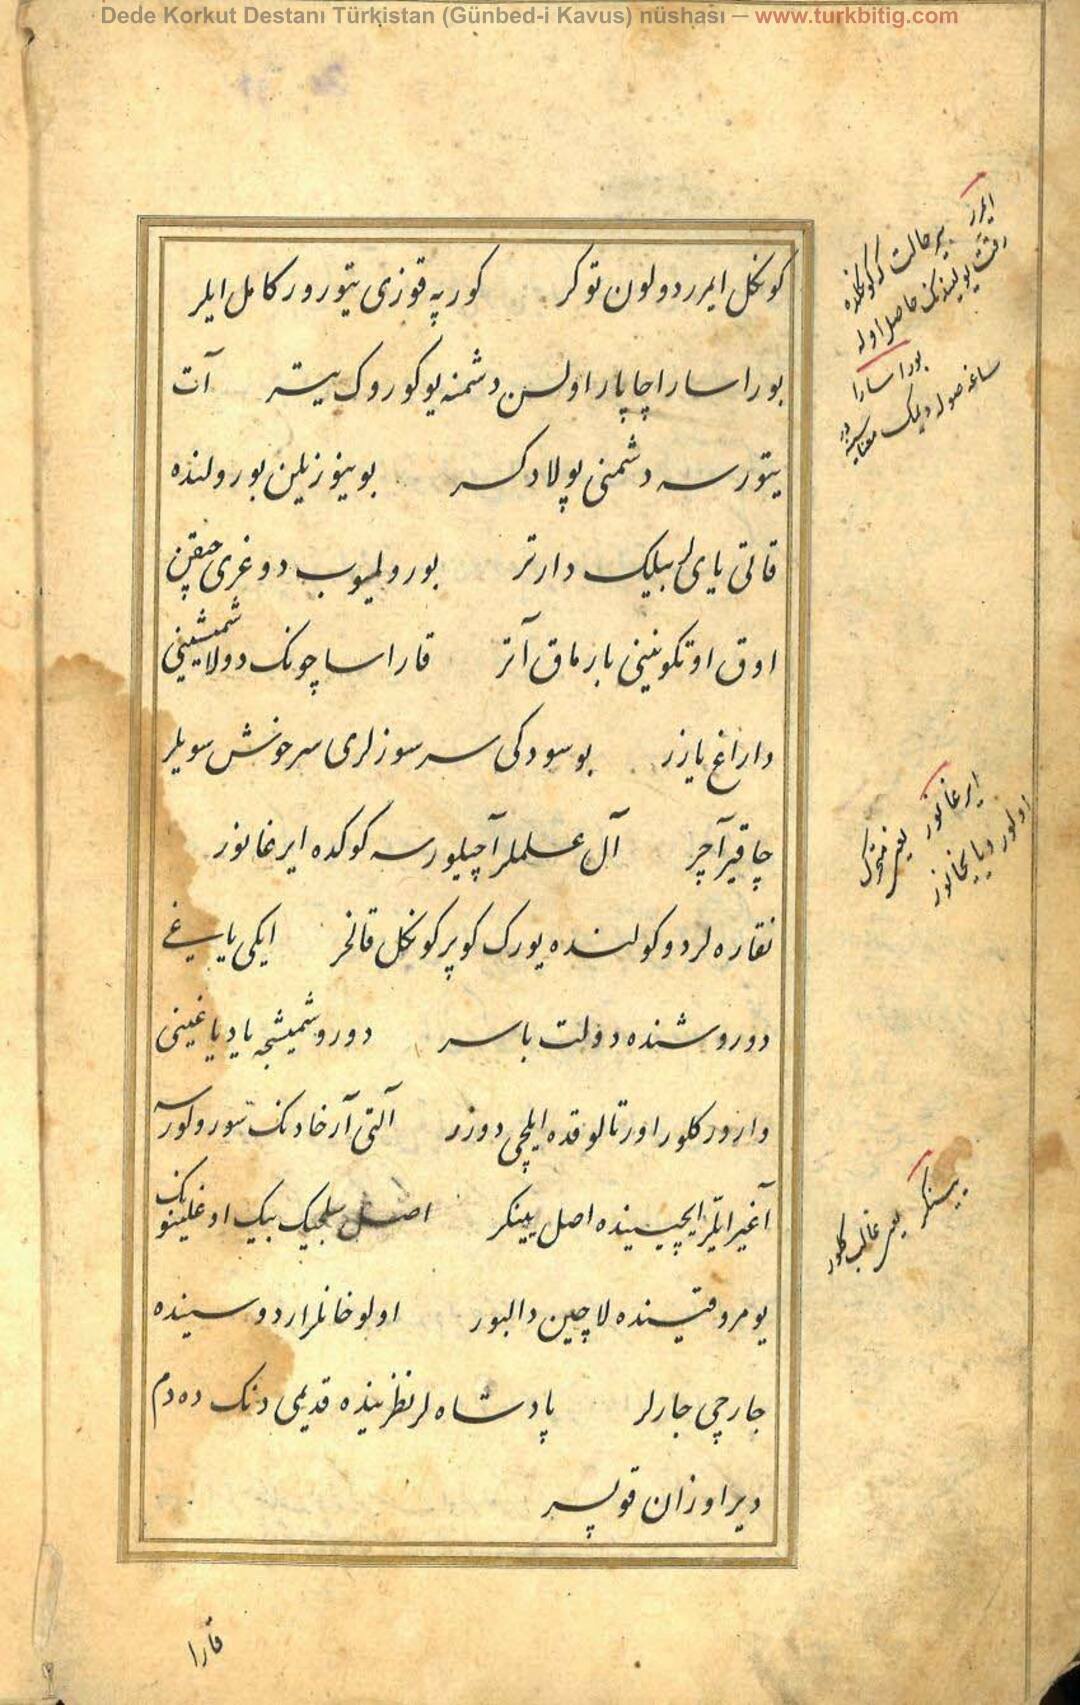 Dede Korkut Destanı Türkistan (Günbed-i Kavus) nüshası — www.turkbitig.com
کونکل ایمرر دولون توکر کورپه قوزی یتورور کامل ایلر
بورا سارا چاپار اولسن دشمنه یوکوروک یتر آت
یتورسه دشمنی پولاد کسر بوینوزیلن بورولنده
قاتی یای لر بیلیک دارتر بورولمیوب دوغری چیقن
اوق اوتکونینی بارماق آتر قارا ساچونک دولاشمیشینی
داراغ یازر بو سودکی سر سوزلری سرخوش سویلر
چاقیر آچر آل علملر آچیلورسه کوکده ایرغانور
نقاره لر دوکولنده یورک کوپر کونکل قانخر ایکی یاغی
دوروشنده دولت باسر دوروشمیشجه یاد یاغینی
وارور کلور اورتالوقده ایلچی دوزر آلتی آرخادنک سورولورسه
آغیر ایللر ایچیسینده اصل یینکر اصل بیلجیک بیک اوغلینونک
یومروقینده لاچین دالبور اولو خانلر اردوسینده
جارچی جارلر پادشاه لر نظرینده قدیمی دنک ده دم
دیر اوزان قوپسر
ایمرر
بیر حالت که کونکلده
رقت یولیندنک حاصل اوله
بورا سارا
ساغه صوله دیمک معناسینه در
ایرغانور یعنی متحرک
اولور
یینکر یعنی غالب کلور
قارا